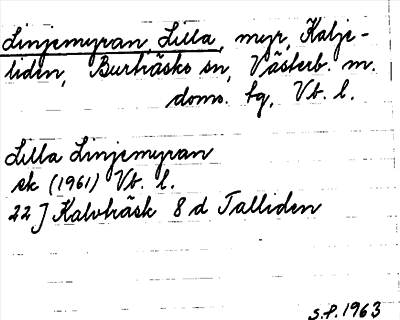 Linjemyran, Lilla, myr, Kalje-
liden, Burträsks sn, Västerb. m.
doms. tg, Vb. l.
Lilla Linjemyran
ek (1961) Vb. l.
22J Kalvträsk 8 d Talliden
S.P. 1963